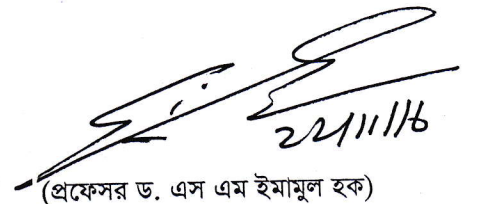 22/11/16
(প্রফেসর ড. এস এম ইমামুল হক)